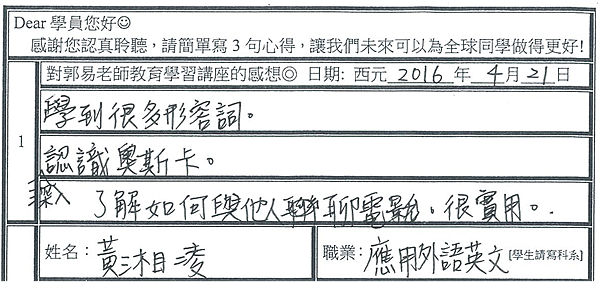 Dear 學員您好☺
感謝您認真聆聽，請簡單寫 3 句心得，讓我們未來可以為全球同學做得更好!
對郭易老師教育學習講座的感想◎ 日期: 西元 2016 年 4 月 21 日
1
學到很多形容詞。
認識奧斯卡。
深入了解如何與他人聊電影，很實用。
姓名：黃湘淩 職業：應用外語英文 [學生請寫科系]